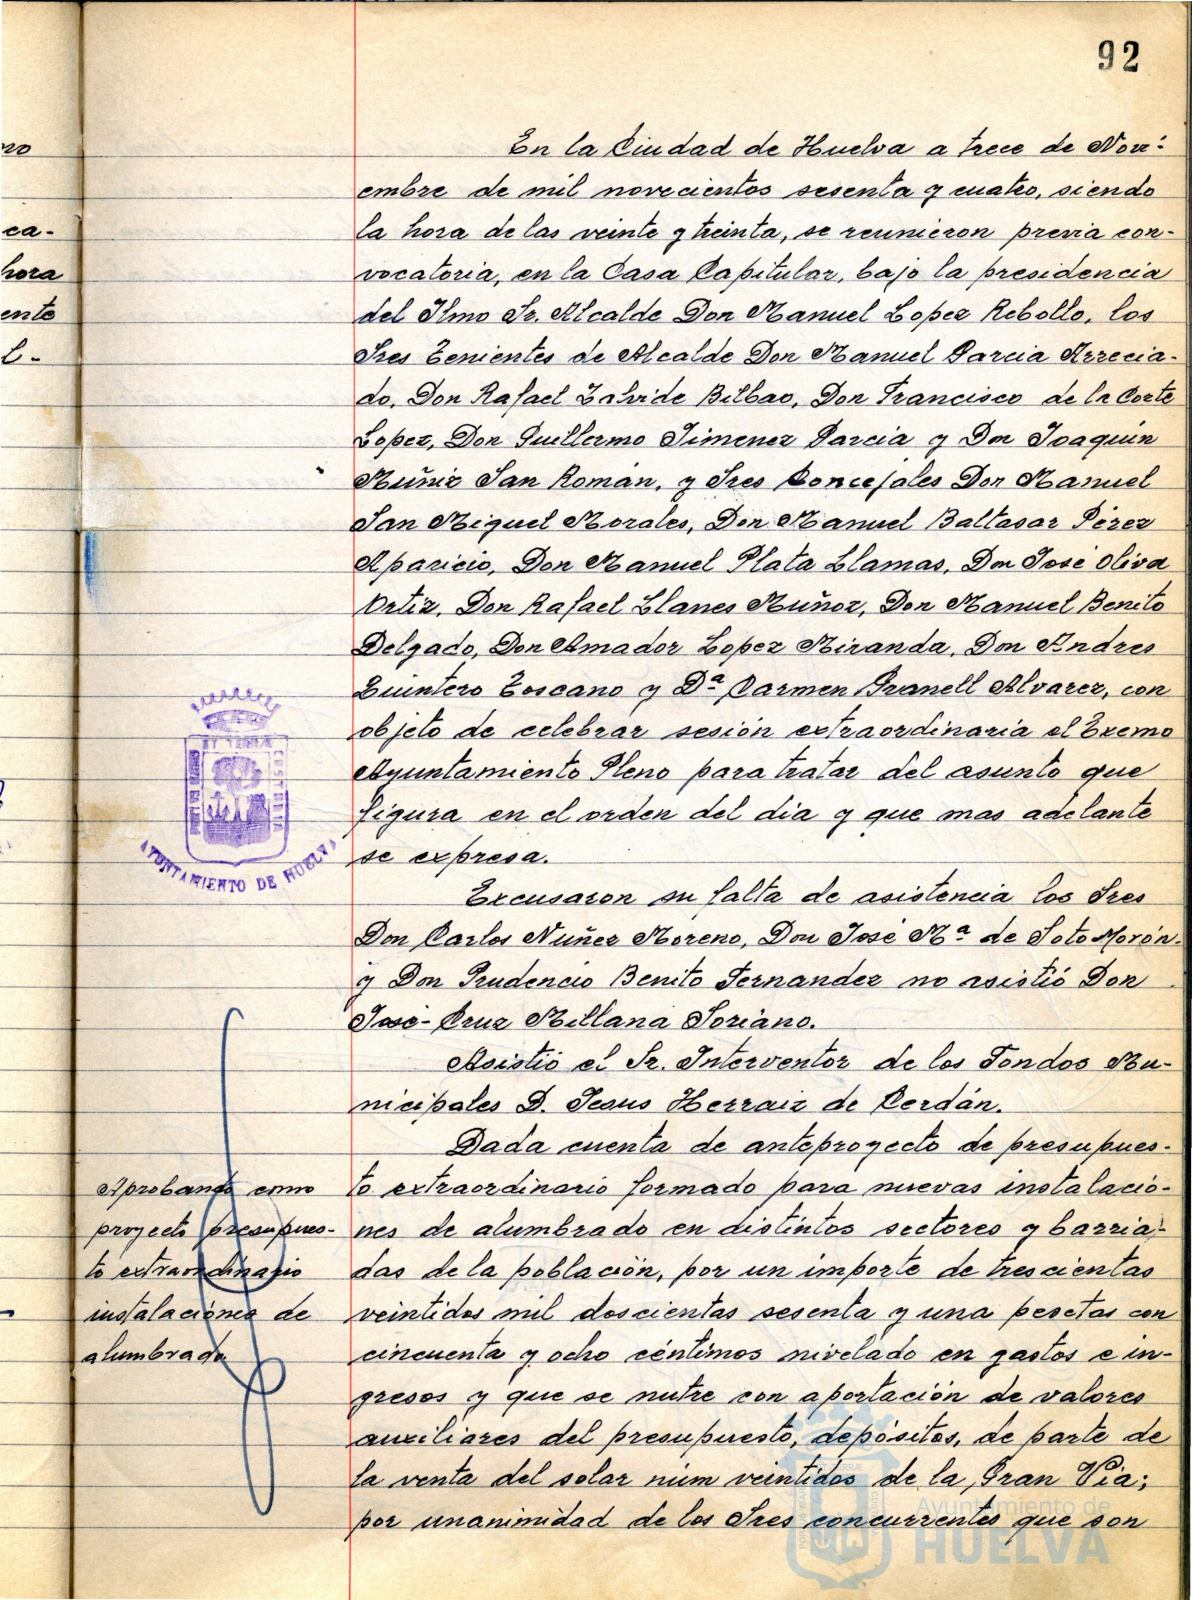 92
En la Ciudad de Huelva a trece de Novi-
embre de mil novecientos sesenta y cuatro, siendo
la hora de las veinte y treinta, se reunieron previa con-
vocatoria, en la Casa Capitular, bajo la presidencia
del Ilmo Sr. Alcalde Don Manuel Lopez Rebollo, los
Sres Tenientes de Alcalde Don Manuel Garcia Arrecia-
do, Don Rafael Zalvide Bilbao, Don Francisco de la Corte
Lopez, Don Guillermo Jimenez Garcia y Don Joaquin
Muñiz San Román, y Sres Concejales Don Manuel
San Miguel Morales, Don Manuel Baltasar Pérez
Aparicio, Don Manuel Plata Llamas, Don José Oliva
Ortiz, Don Rafael Llanes Muñoz, Don Manuel Benito
Delgado, Don Amador Lopez Miranda, Don Andres
Quintero Toscano y Dª Carmen Granell Alvarez, con
objeto de celebrar sesión extraordinaria el Excmo
Ayuntamiento Pleno para tratar del asunto que
figura en el orden del dia y que mas adelante
se expresa.
Excusaron su falta de asistencia los Sres
Don Carlos Nuñez Moreno, Don José Mª de Soto Morón
y Don Prudencio Benito Fernandez no asistió Don
José-Cruz Millana Soriano.
Asistió el Sr. Interventor de los Fondos Mu-
nicipales D. Jesus Herraiz de Cerdán.
Dada cuenta de anteproyecto de presupues-
to extraordinario formado para nuevas instalacio-
nes de alumbrado en distintos sectores y barria-
das de la población, por un importe de trescientas
veintidos mil doscientas sesenta y una pesetas con
cincuenta y ocho céntimos nivelado en gastos e in-
gresos y que se nutre con aportación de valores
auxiliares del presupuesto, depósitos, de parte de
la venta del solar núm veintidos de la Gran Via;
por unanimidad de los Sres concurrentes que son
Aprobando como
proyecto presupues-
to extraordinario
instalaciones de
alumbrado
AYUNTAMIENTO DE HUELVA
ca-
hora
ente
l-
Ayuntamiento de
HUELVA